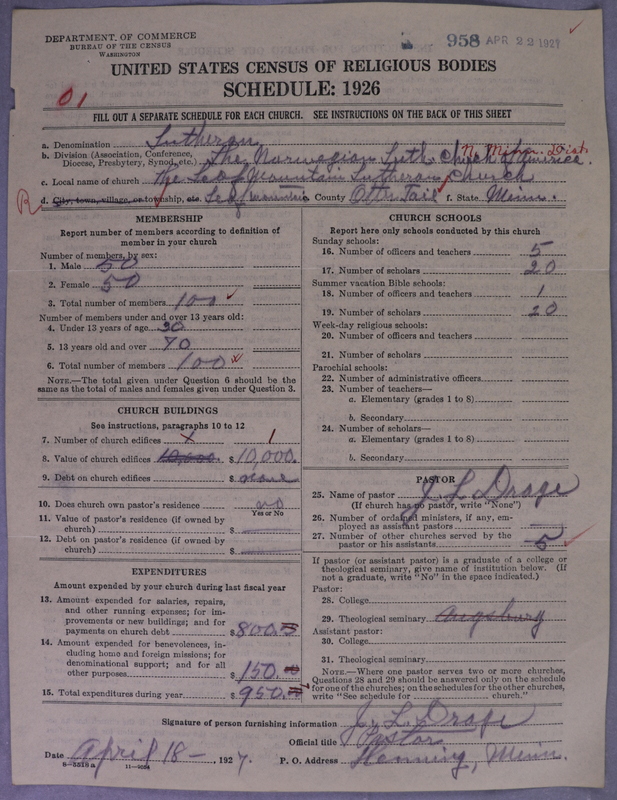 DEPARTMENT OF COMMERCE
BUREAU OF THE CENSUS
WASHINGTON
958 APR 22 1927
UNITED STATES CENSUS OF RELIGIOUS BODIES
SCHEDULE: 1926
01
FILL OUT A SEPARATE SCHEDULE FOR EACH CHURCH. SEE INSTRUCTIONS ON THE BACK OF THIS SHEET
a. Denomination Lutheran
N. Minn. Dist.
b. Division (Association, Conference, Diocese, Presbytery, Synod, etc.) The Norwegian Luth. Church of America.
c. Local name of church The Leaf Mountain Lutheran Church
R d. City, town, village, or township, etc. Leaf Mountain County Otter Tail f. State Minn.
MEMBERSHIP
Report number of members according to definition of
member in your church
Number of members, by sex:
1. Male 50
2. Female 50
3. Total number of members 100
Number of members under and over 13 years old:
4. Under 13 years of age 30
5. 13 years old and over 70
6. Total number of members 100
NOTE.—The total given under Question 6 should be the
same as the total of males and females given under Question 3.
CHURCH BUILDINGS
See instructions, paragraphs 10 to 12
7. Number of church edifices X 1
8. Value of church edifices 10,000. $ 10,000.
9. Debt on church edifices $ none
10. Does church own pastor's residence no
Yes or No
11. Value of pastor's residence (if owned by
church) $
12. Debt on pastor's residence (if owned by
church) $
EXPENDITURES
Amount expended by your church during last fiscal year
13. Amount expended for salaries, repairs,
and other running expenses; for im-
provements or new buildings; and for
payments on church debt $ 800.
14. Amount expended for benevolences, in-
cluding home and foreign missions; for
denominational support; and for all
other purposes $ 150.
15. Total expenditures during year $ 950.
CHURCH SCHOOLS
Report here only schools conducted by this church
Sunday schools:
16. Number of officers and teachers 5
17. Number of scholars 20
Summer vacation Bible schools:
18. Number of officers and teachers 1
19. Number of scholars 20
Week-day religious schools:
20. Number of officers and teachers
21. Number of scholars
Parochial schools:
22. Number of administrative officers
23. Number of teachers—
a. Elementary (grades 1 to 8)
b. Secondary
24. Number of scholars—
a. Elementary (grades 1 to 8)
b. Secondary
PASTOR
25. Name of pastor J. L. Drape
(If church has no pastor, write "None")
26. Number of ordained ministers, if any, em-
ployed as assistant pastors
27. Number of other churches served by the
pastor or his assistants 5
If pastor (or assistant pastor) is a graduate of a college or
theological seminary, give name of institution below. (If
not a graduate, write "No" in the space indicated.)
Pastor:
28. College
29. Theological seminary Augsburg
Assistant pastor:
30. College
31. Theological seminary
NOTE.—Where one pastor serves two or more churches,
Questions 28 and 29 should be answered only on the schedule
for one of the churches; on the schedules for the other churches,
write "See schedule for church."
Signature of person furnishing information J. L. Drape
Official title Pastor
Date April 18 - 1927. P. O. Address Henning, Minn.
8-5518a 11-9554